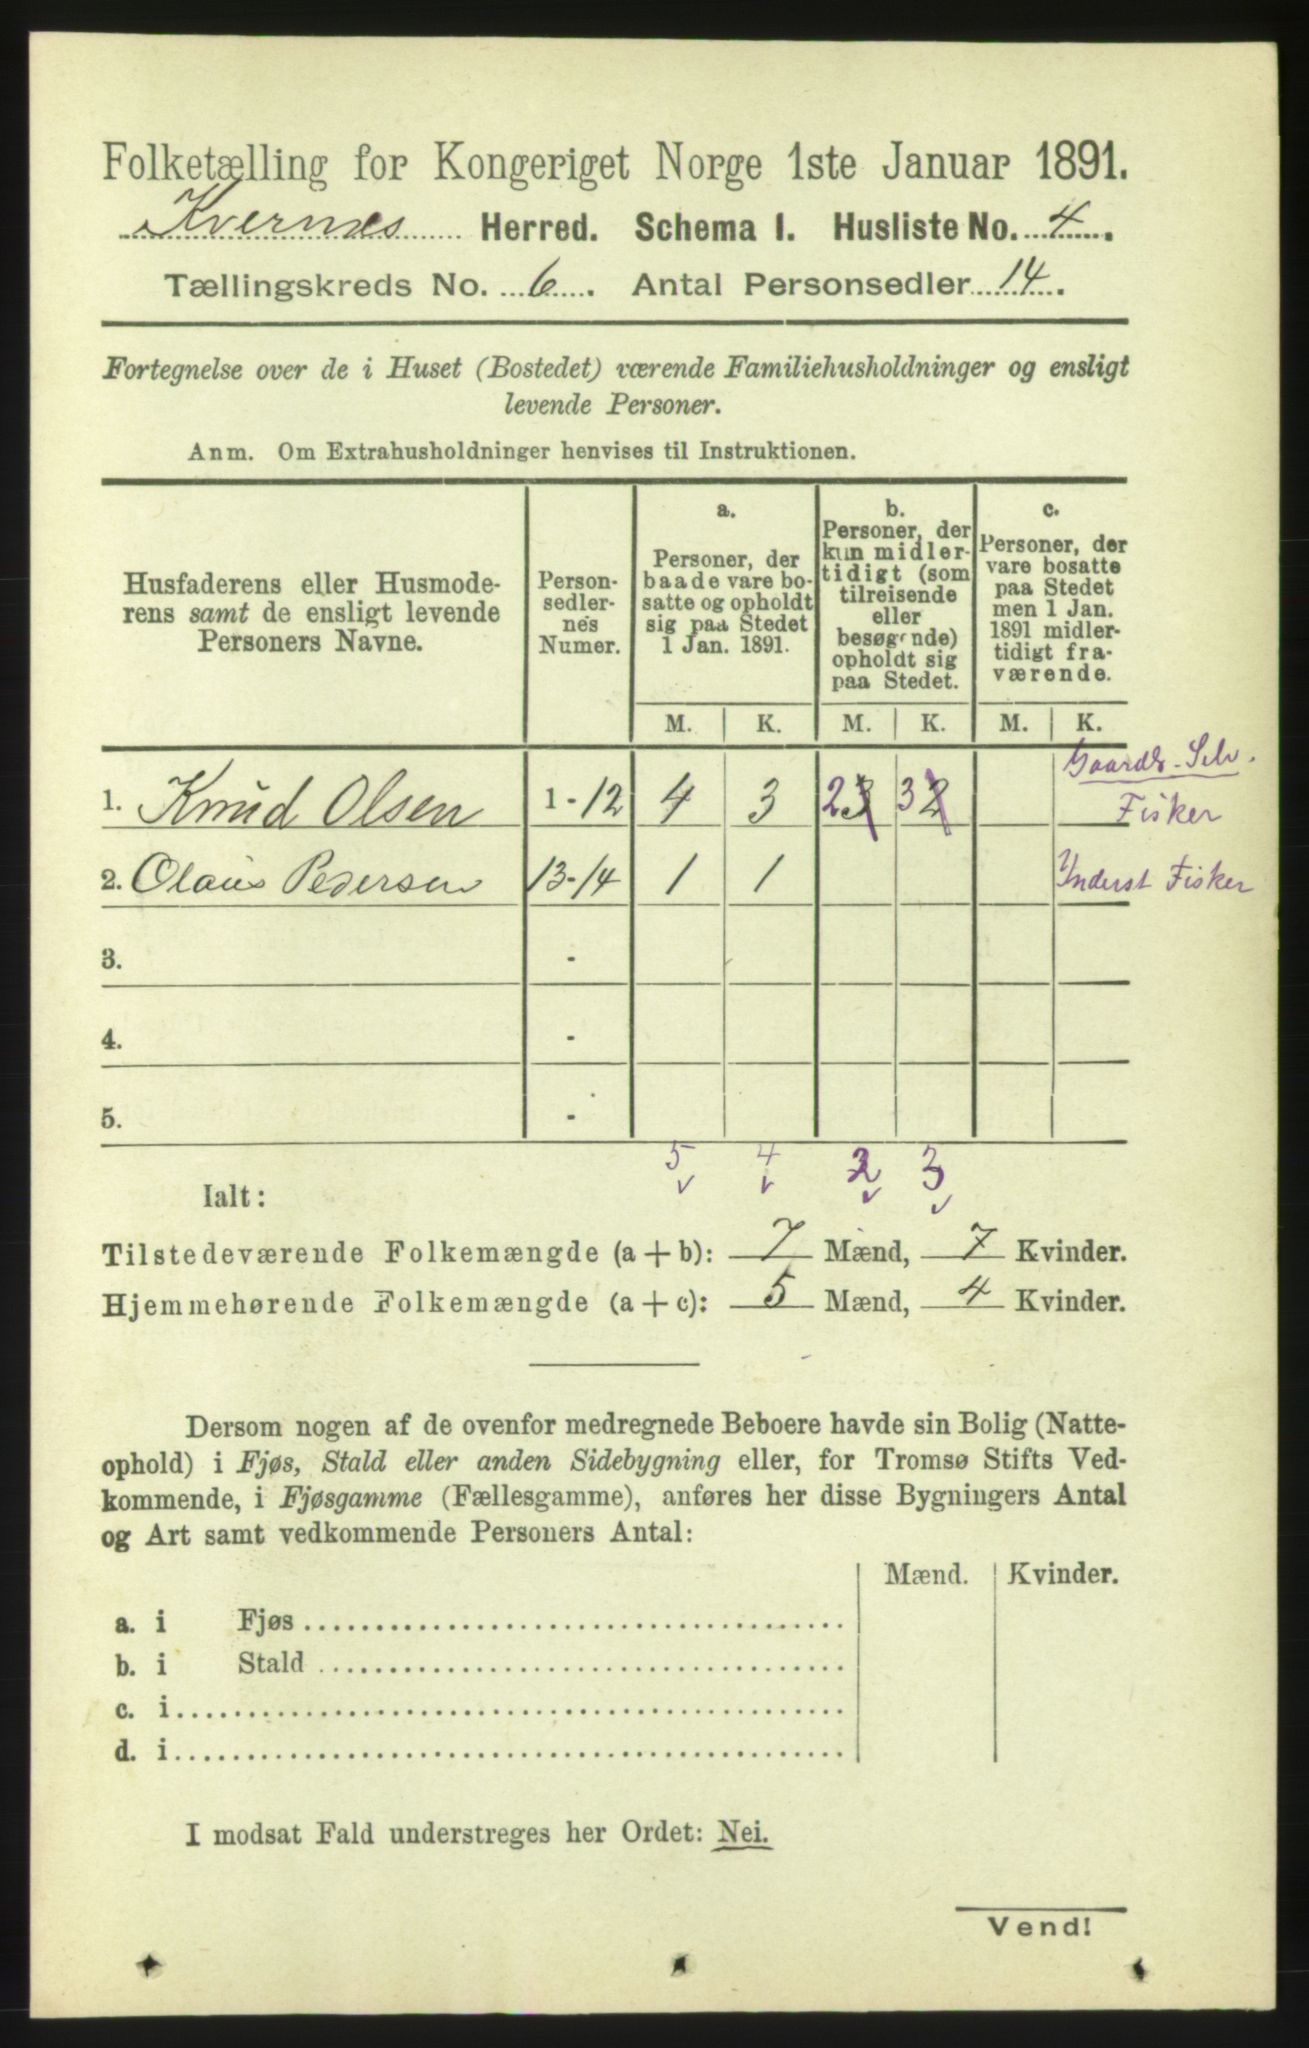 Folketælling for Kongeriget Norge 1ste Januar 1891.
Kvernes Herred. Schema I. Husliste No. 4.
Tællingskreds No. 6. Antal Personsedler 14.
Fortegnelse over de i Huset (Bostedet) værende Familiehusholdninger og ensligt
levende Personer.
Anm. Om Extrahusholdninger henvises til Instruktionen.
Husfaderens eller Husmode-
rens samt de ensligt levende
Personers Navne.
Person-
sedler-
nes
Numer.
a.
Personer, der
baade vare bo-
satte og opholdt
sig paa Stedet
1 Jan. 1891.
b.
Personer, der
kun midler-
tidigt (som
tilreisende
eller
besøgende)
opholdt sig
paa Stedet.
c.
Personer, der
vare bosatte
paa Stedet
men 1 Jan.
1891 midler-
tidigt fra-
værende.
M. K. M. K. M. K.
Gaardb. Selv.
1. Knud Olsen 1-12 4 3 2 3 3 2 Fisker
2. Olaus Pedersen 13-14 1 1 Inderst Fisker
3. -
4. -
5. -
5 4 2 3
Ialt:
Tilstedeværende Folkemængde (a + b): 7 Mænd, 7 Kvinder.
Hjemmehørende Folkemængde (a + c): 5 Mænd, 4 Kvinder.
Dersom nogen af de ovenfor medregnede Beboere havde sin Bolig (Natte-
ophold) i Fjøs, Stald eller anden Sidebygning eller, for Tromsø Stifts Ved-
kommende, i Fjøsgamme (Fællesgamme), anføres her disse Bygningers Antal
og Art samt vedkommende Personers Antal:
Mænd. Kvinder.
a. i Fjøs
b. i Stald
c. i
d. i
I modsat Fald understreges her Ordet: Nei.
Vend!